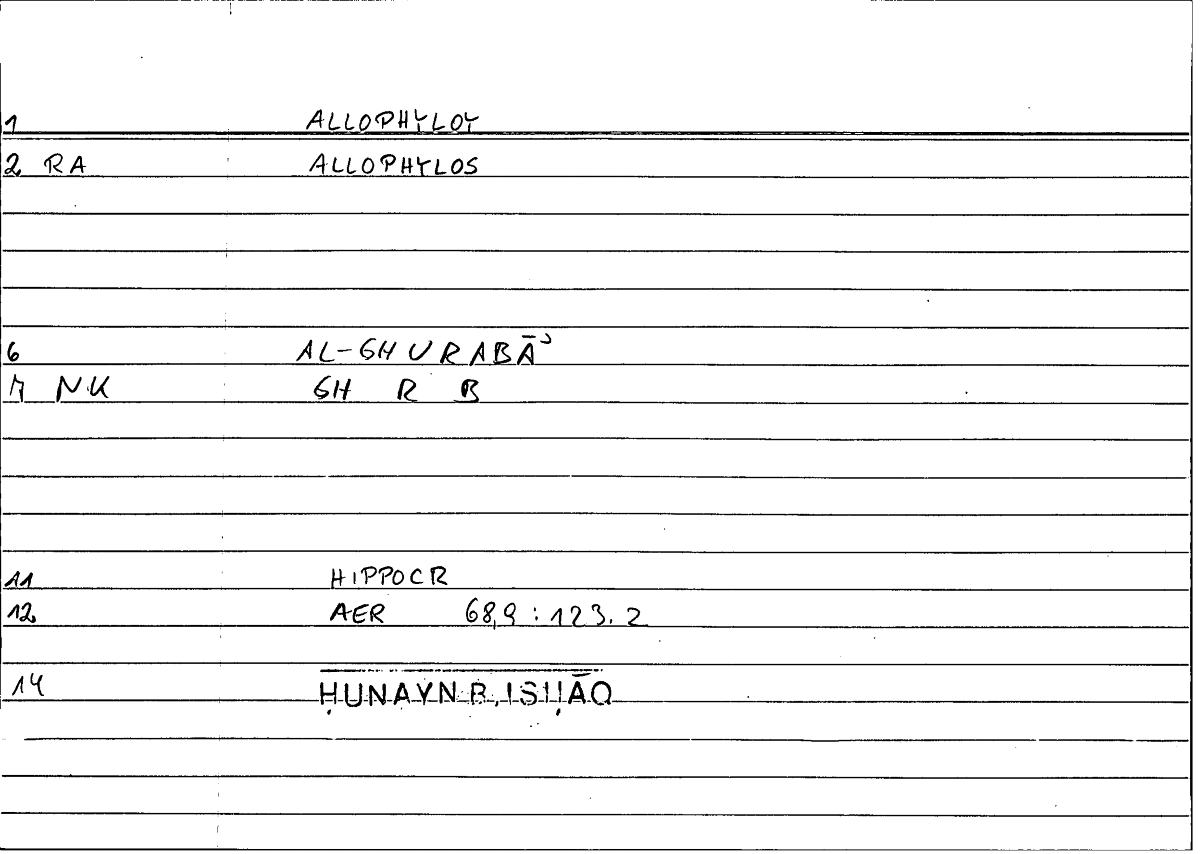 1 ALLOPHYLOY
2 RA ALLOPHYLOS
6 AL-GHURABĀʾ
7 NK GH R B
11 HIPPOCR
12 AER 68,9 : 123.2
14 ḤUNAYN B. ISḤĀQ